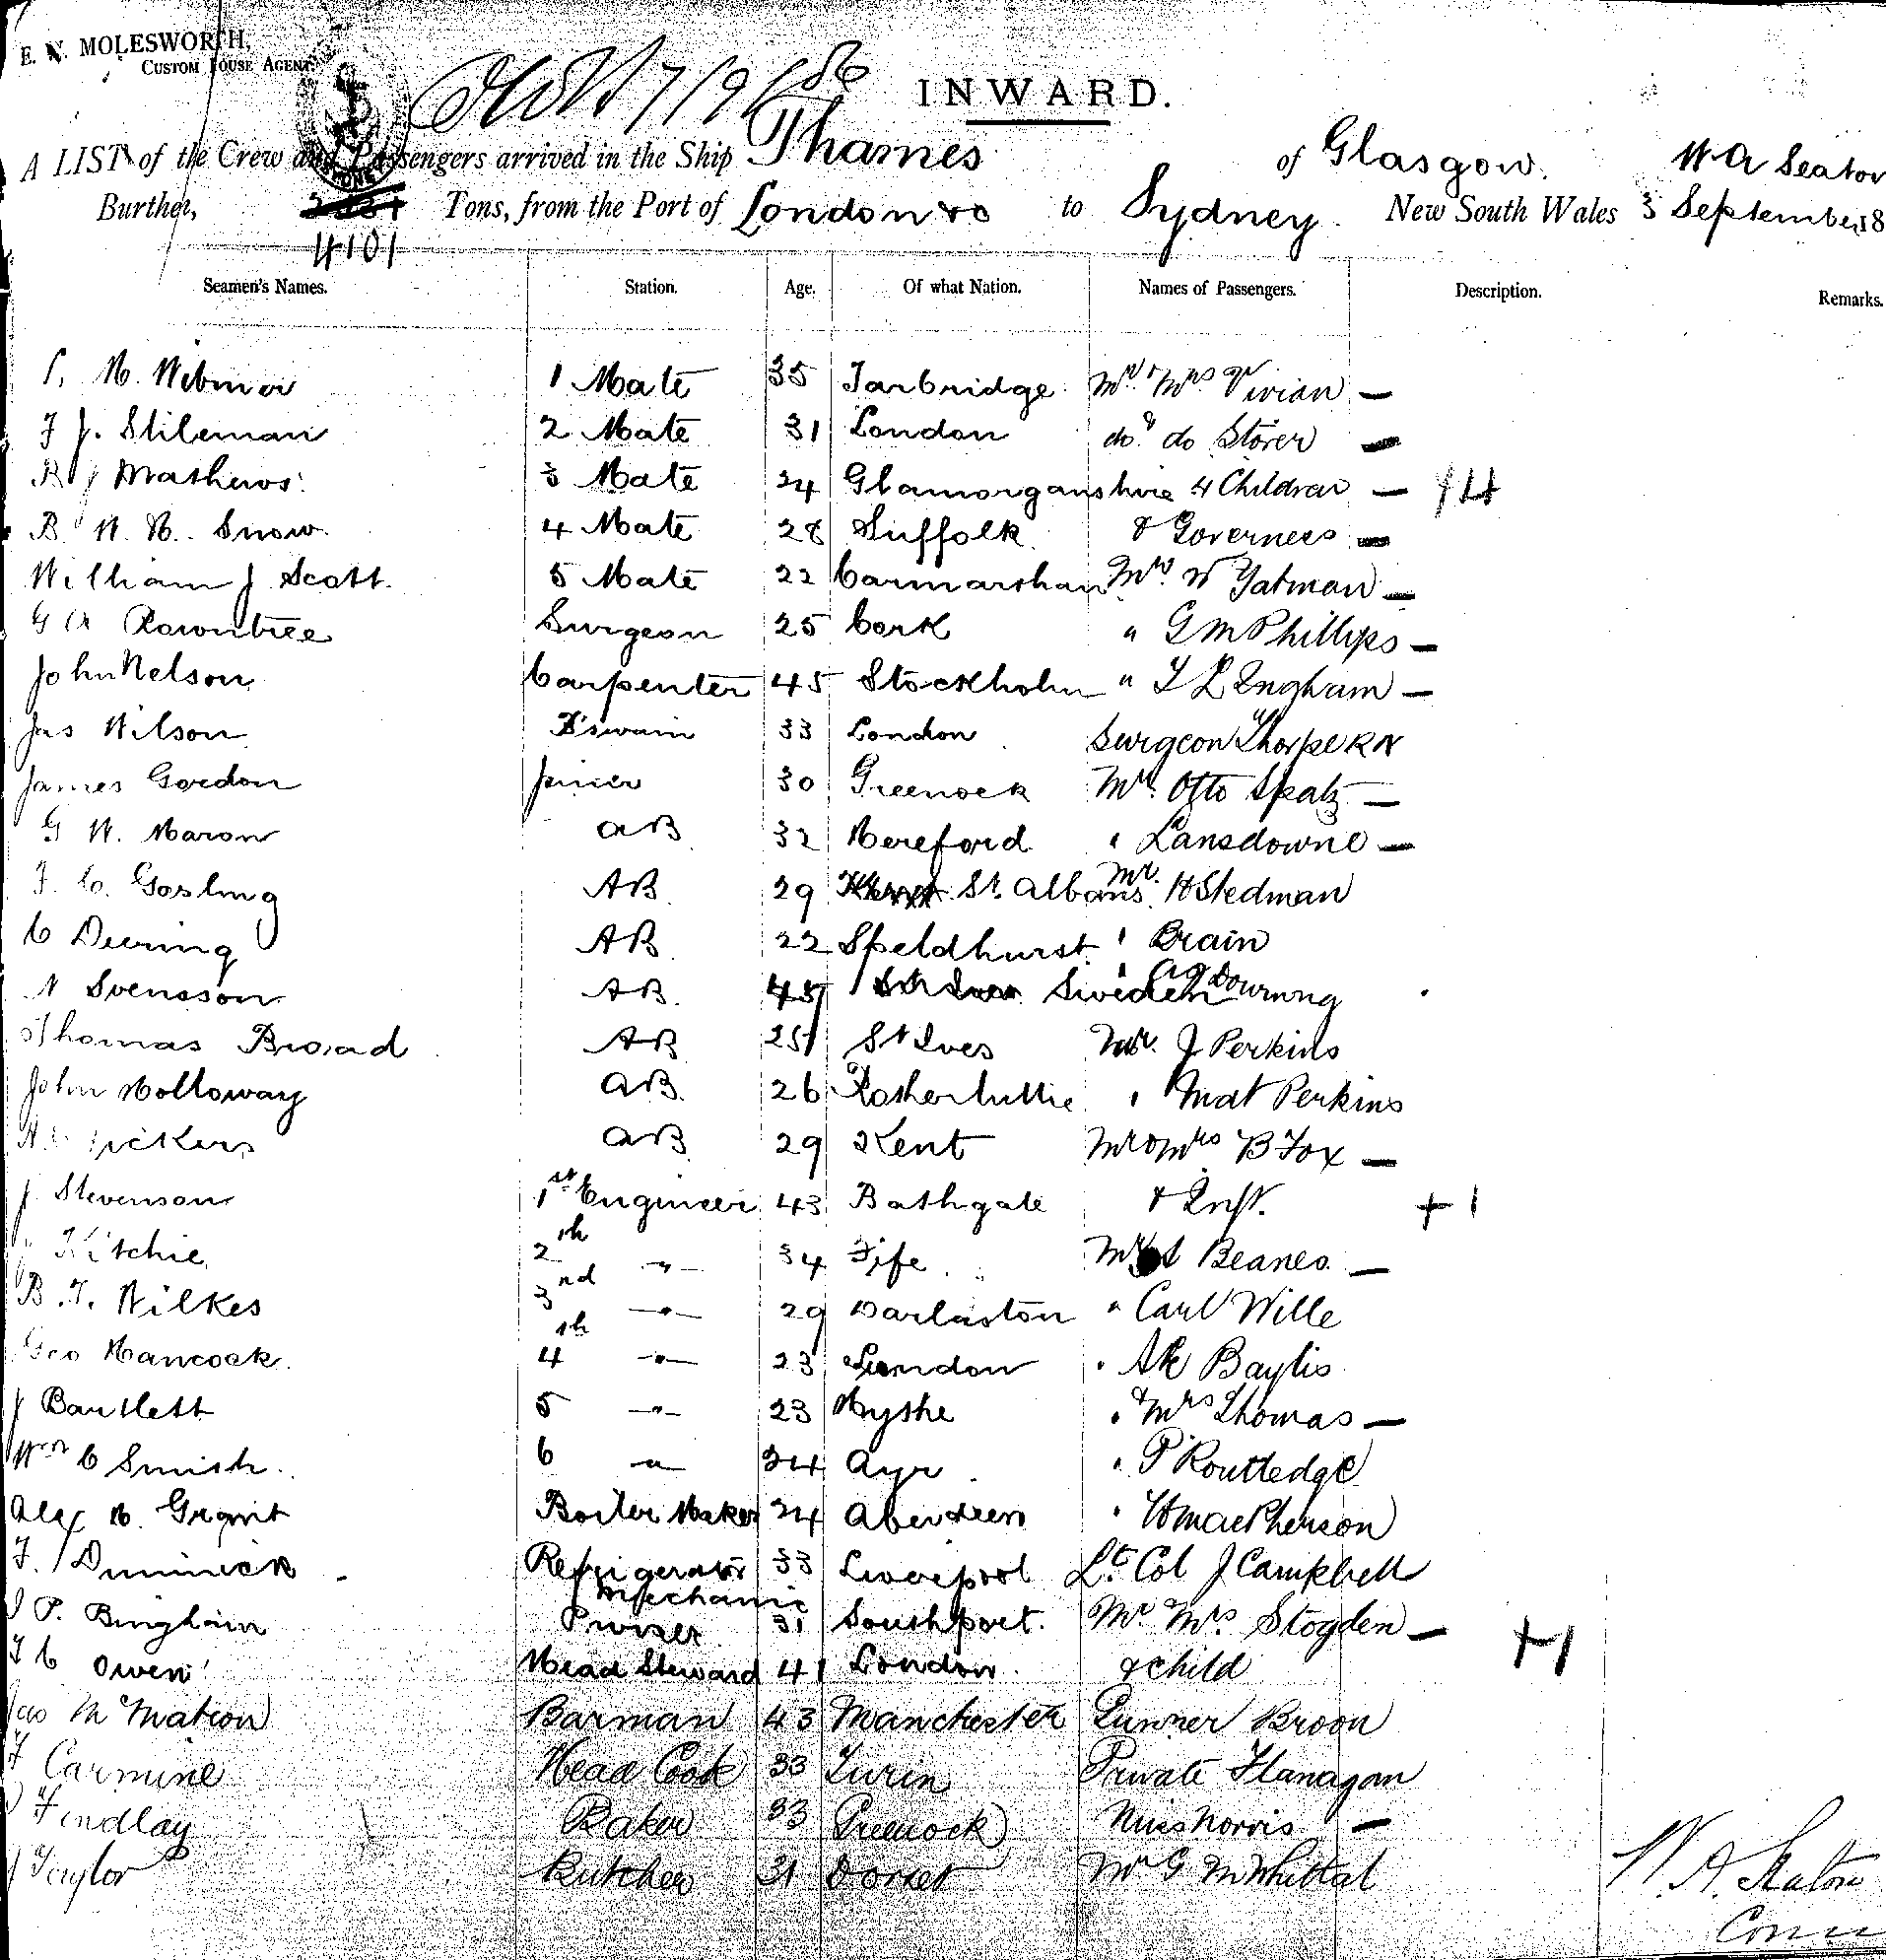 E. N. MOLESWORTH,
CUSTOM HOUSE AGENT.
INWARD.
A LIST of the Crew and Passengers arrived in the Ship Thames of Glasgow. W A Seaton
Burthen, 4101 Tons, from the Port of London &c to Sydney. New South Wales 3 September 18
Seamen's Names. Station. Age. Of what Nation. Names of Passengers. Description. Remarks.
1 Mate 35 Mr & Mrs Vivian —
F J. Stileman 2 Mate 31 London do & do Storer —
R J Mathews 3 Mate 24 Glamorganshire 4 Children — +4
B W. H. Snow 4 Mate 28 Suffolk & Governess —
William J Scott. 5 Mate 22 Carmarthan Mr W Yatman —
G A Rowntree Surgeon 25 Cork " G M Phillips —
John Nelson Carpenter 45 Stockholm " T L Ingham —
Jas Wilson B'swain 33 London Surgeon Thorpe R N
James Gordon Joiner 30 Greenock Mr. Otto Spatz —
G H. Maron AB 32 Hereford " Lansdowne —
F. C. Gosling AB 29 St. Albans Mr. H Stedman
C Deering AB 22 Speldhurst " Brain
N Svensson AB 45 Sweden " A G Downing
Thomas Broad AB 25 St Ives Mr. J Perkins
John Holloway AB 26 " Mat Perkins
AB 29 Kent Mr & Mrs B Fox —
J. Stevenson 1st Engineer 43 Bathgate & Inft. + 1
Ritchie 2th " 34 Fife Beanes —
B. T. Wilkes 3nd " 29 Darlaston " Carl Wille
Geo Hancock. 4th " 23 London " Baylis
J Bartlett 5 " 23 Hythe " & Mrs Thomas —
Wm C Smith. 6 " 24 Ayr " P Routledge
Alex H. Grant Boiler Maker 24 Aberdeen " H MacPherson
F. Dimmick Refrigerator Mechanic 33 Liverpool Lt. Col J Campbell
P. Bingham Purser 31 Southport. Mr Mrs Stogden — +1
F C Owen Head Steward 41 London. & child
Jas M Matron Barman 43 Manchester Gunner Broon
F Carmine Head Cook 33 Turin Private Flanagan
Findlay Baker 33 Greenock Miss Norris —
J Taylor Butcher 31 Dorset Mr G M Whittal
W. A. Seaton